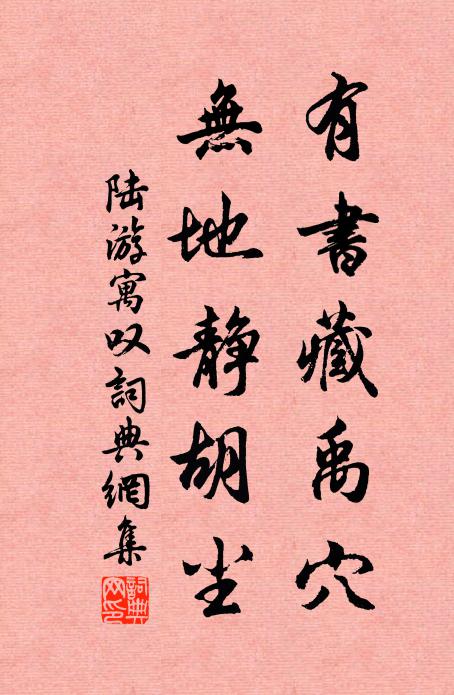 有書藏禹穴
無地静胡尘
陆游寓叹詞典網集
詞典網印